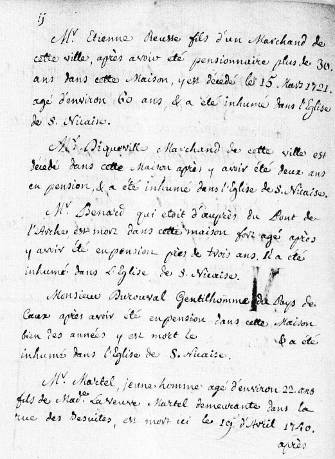 Mr. Etienne Reusse fils d'un Marchand de
cette ville, après avoir été pensionnaire plus de 30.
ans dans cette Maison, y est décédé le 15 Mars 1721.
agé d'environ 60 ans, & a été inhumé dans l'Eglise
de S. Nicaise.
Mr. Diquervile Marchand de cette ville est
decedé dans cette Maison après y avoir été deux ans
en pension, & a été inhumé dans l'Eglise de S. Nicaise.
Mr. Benard qui etoit d'auprès du Pont de
l'Arche est mort dans cette maison fort agé après
y avoir été en pension près de trois ans. Il a été
inhumé dans L'Eglise de S. Nicaise.
Monsieur Gentilhomme du Pays de
Caux après avoir été en pension dans cette Maison
bien des années y est mort le & a été
inhumé dans l'Eglise de S. Nicaise.
Mr. Martel, jeune homme agé d'environ 22 ans
fils de Made. La Veuve Martel demeurante dans la
rue des Jesuites, est mort ici le 19 d'Avril 1740.
après